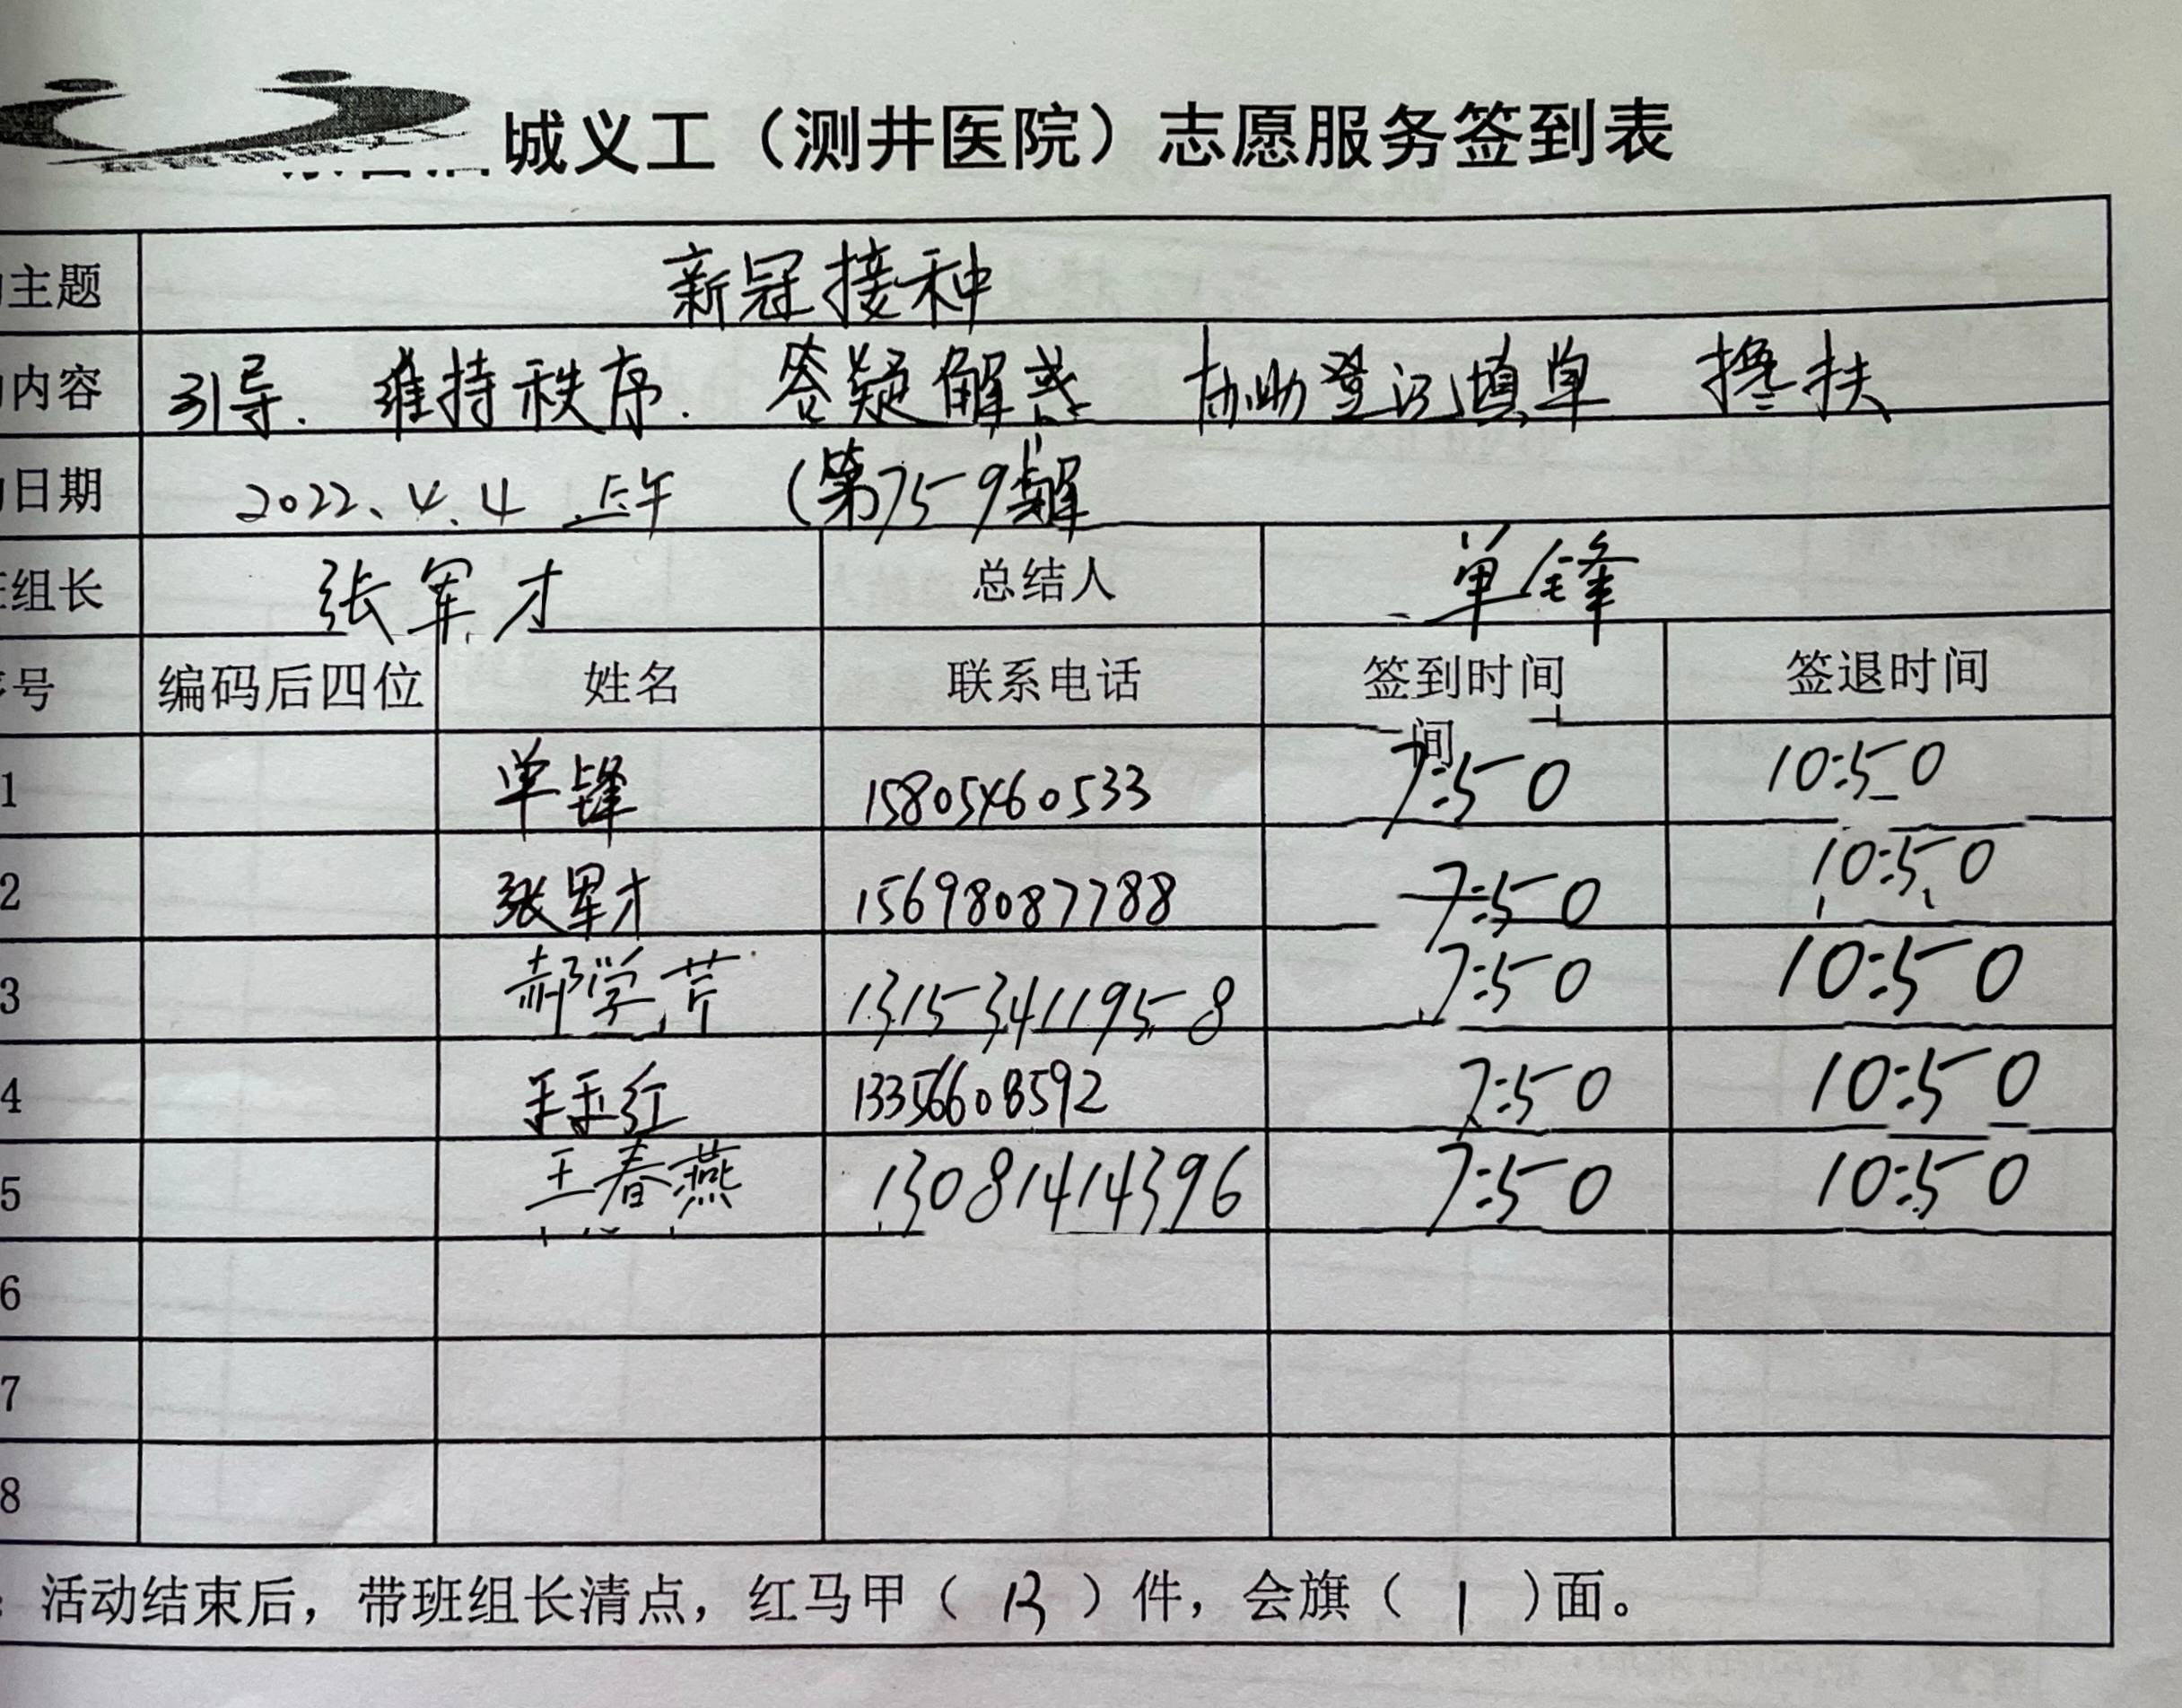 城义工（测井医院）志愿服务签到表
主题 新冠接种
内容 引导. 维持秩序. 答疑解惑 协助登记填单 搀扶
日期 2022、4.4 上午 (第759
组长 张军才 总结人 单锋
号 编码后四位 姓名 联系电话 签到时间 签退时间
间
1 单锋 15805460533 7:50 10:50
2 张军才 15698087788 7:50 10:50
3 郝学芹 13153411958 7:50 10:50
4 红 13356608592 7:50 10:50
5 王春燕 13081414396 7:50 10:50
6
7
8
活动结束后，带班组长清点，红马甲（ 13 ）件，会旗（ 1 )面。